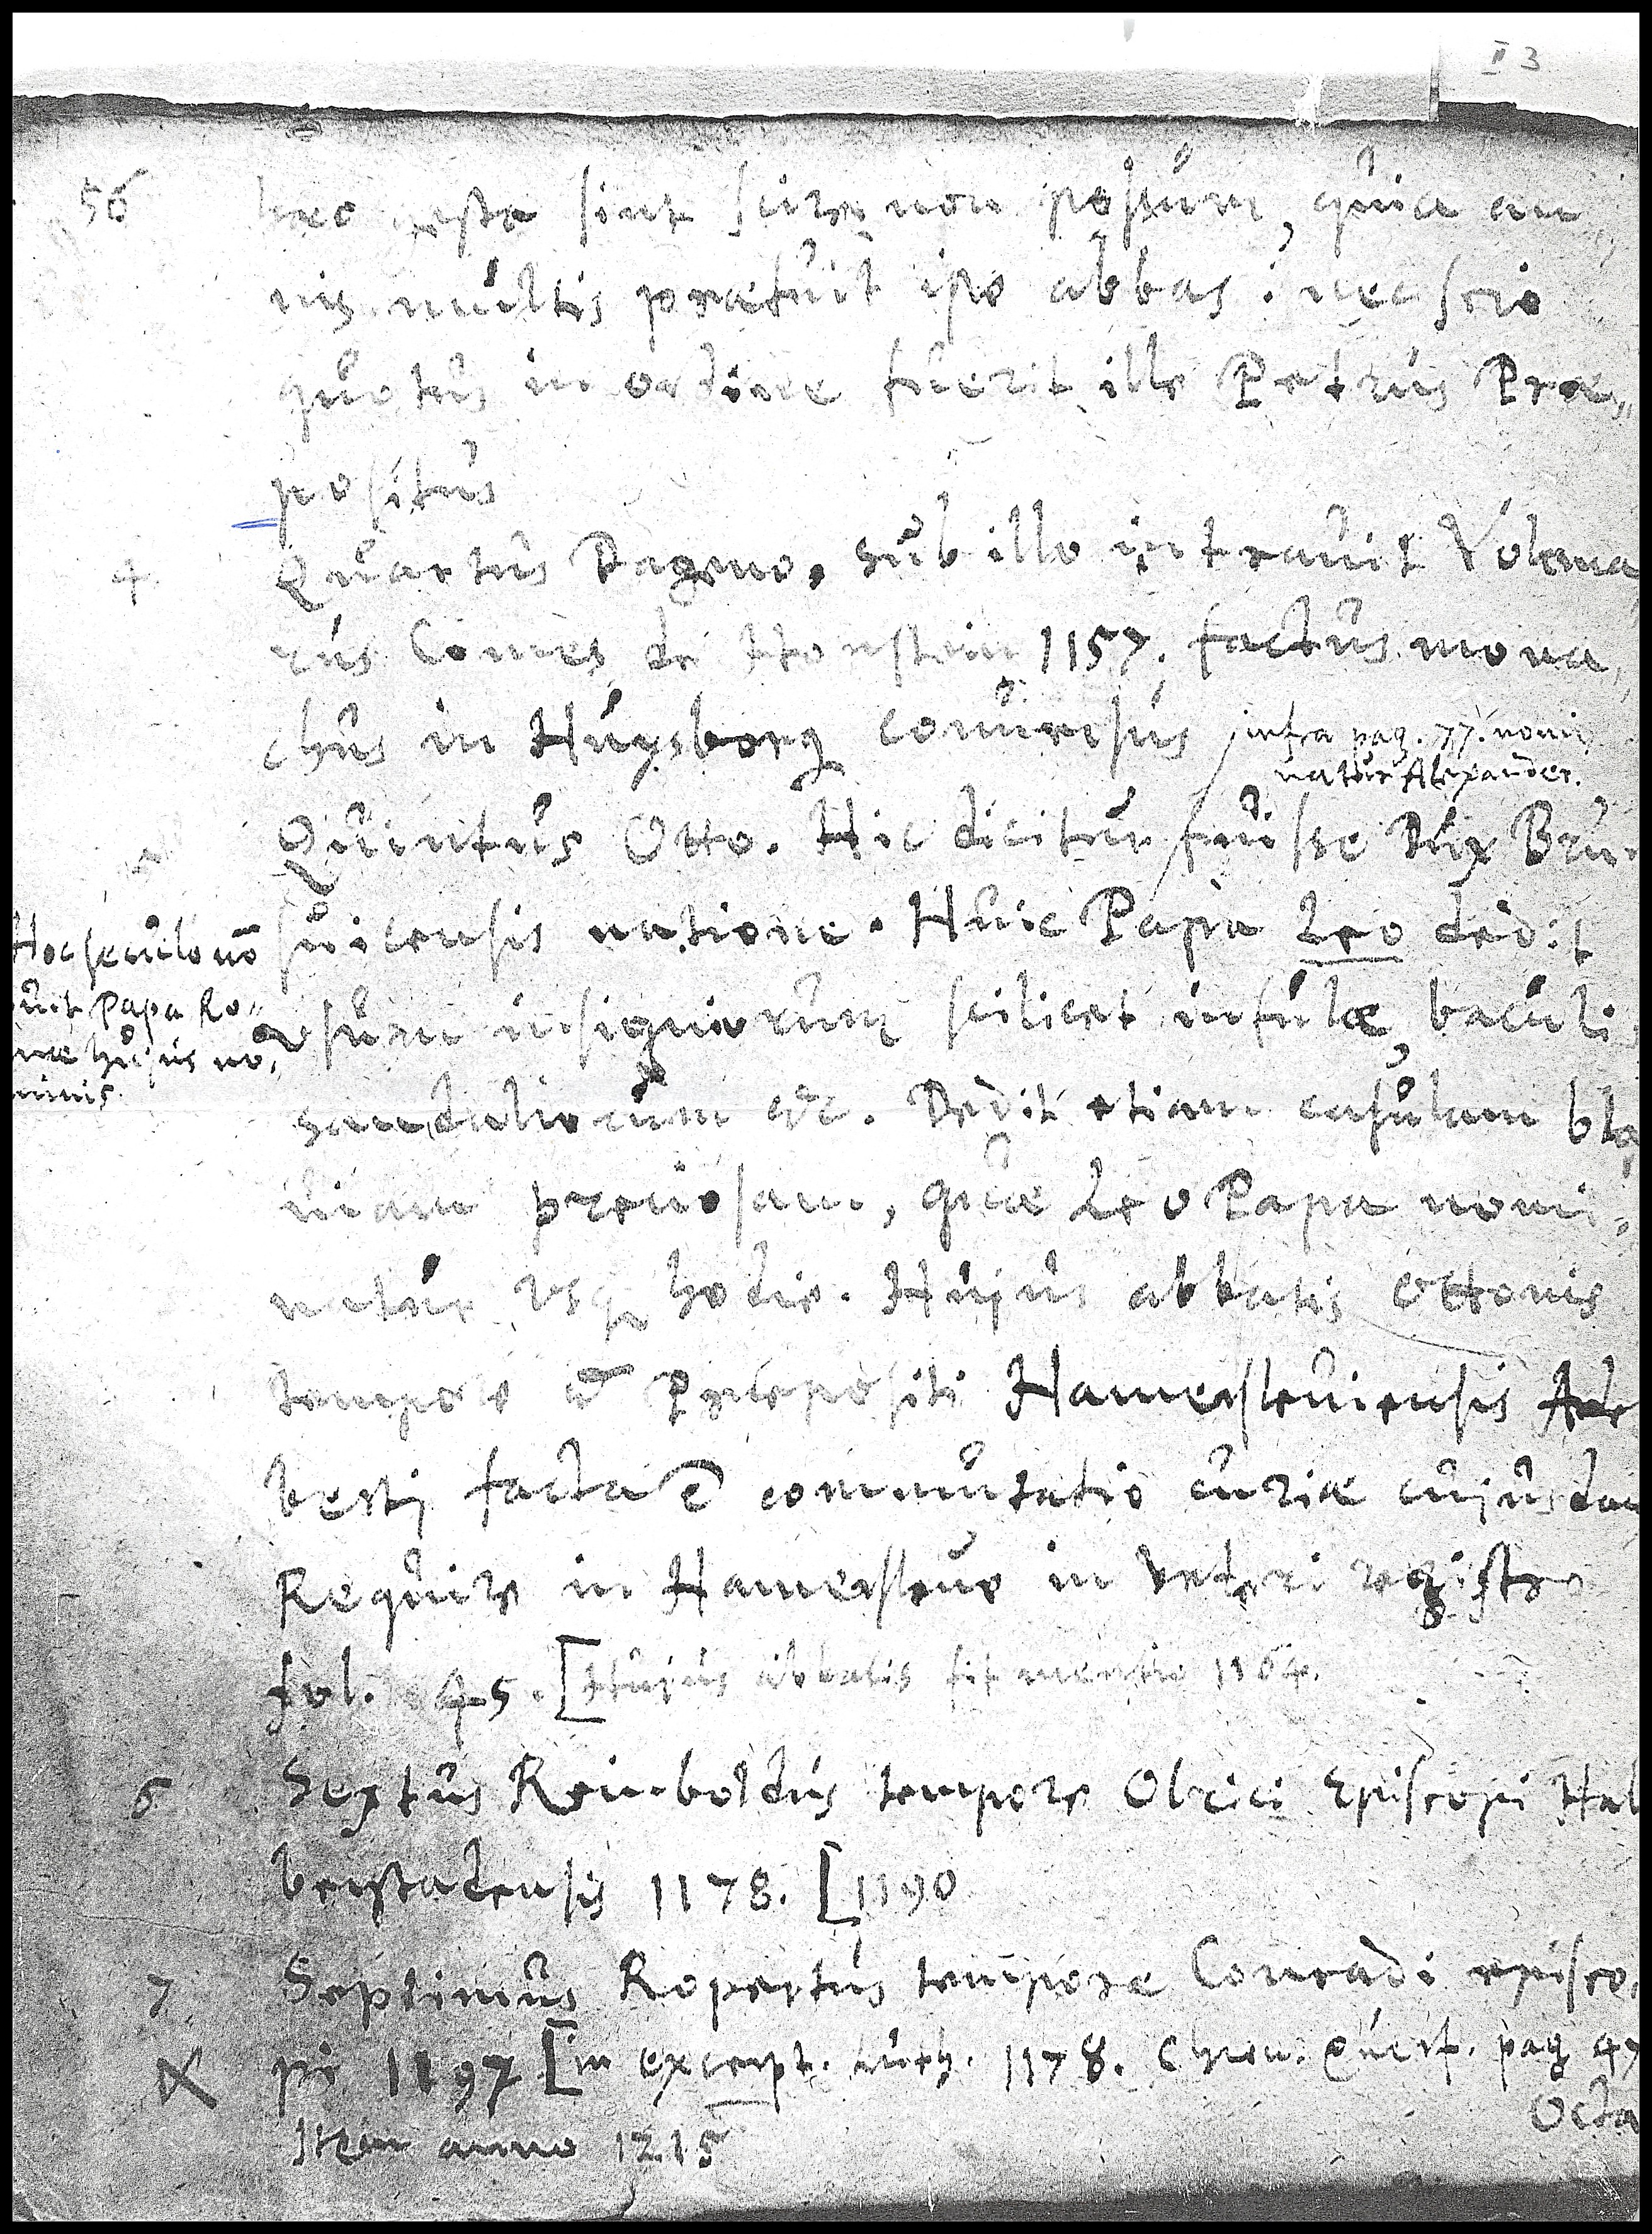 II 3
56
haec gesta sint scire non possum, quia an,,
nis multis praefuit ipse abbas: nescio
quotus in ordine fuerit ille Petrus Prae,,
positus
4 Quartus Bageno. Sub illo intravit Volcma
rus Comes de Honstein 1157. factus mona,,
chus in Huysborg conversus
infra pag. 77. nomi
natur Alexander.
Quintus Otto. Hic dicitur fuisse Dux Brun
Hoc seculo nō
fuit Papa Ro,,
nae hujus no,
minis.
suicensis natione. Huic Papa Leo dedit
usum insigniorum scilicet infulae, baculi
sandaliorum etc. Dedit etiam casulam bla,
viam preciosam, quae Leo Papa nomi:
natur usq hodie. Hujus abbatis Ottonis
tempore et Praepositi Hamersleviensis
berti facta ē commutatio curiae cujusdam
Require in Hamersleve in veteri registro
fol. 45. [Hujus abbatis fit mentio 1164.
6 Sextus Reinboldus tempore Olrici Episcopi Hal
berstadensis 1178. [1190
7 Septimus Ropertus tempore Conradi episco,
pi 1197 [in excerpt. Luth. 1178. Chron. Quest. pag 47
Item anno 1215
Octa